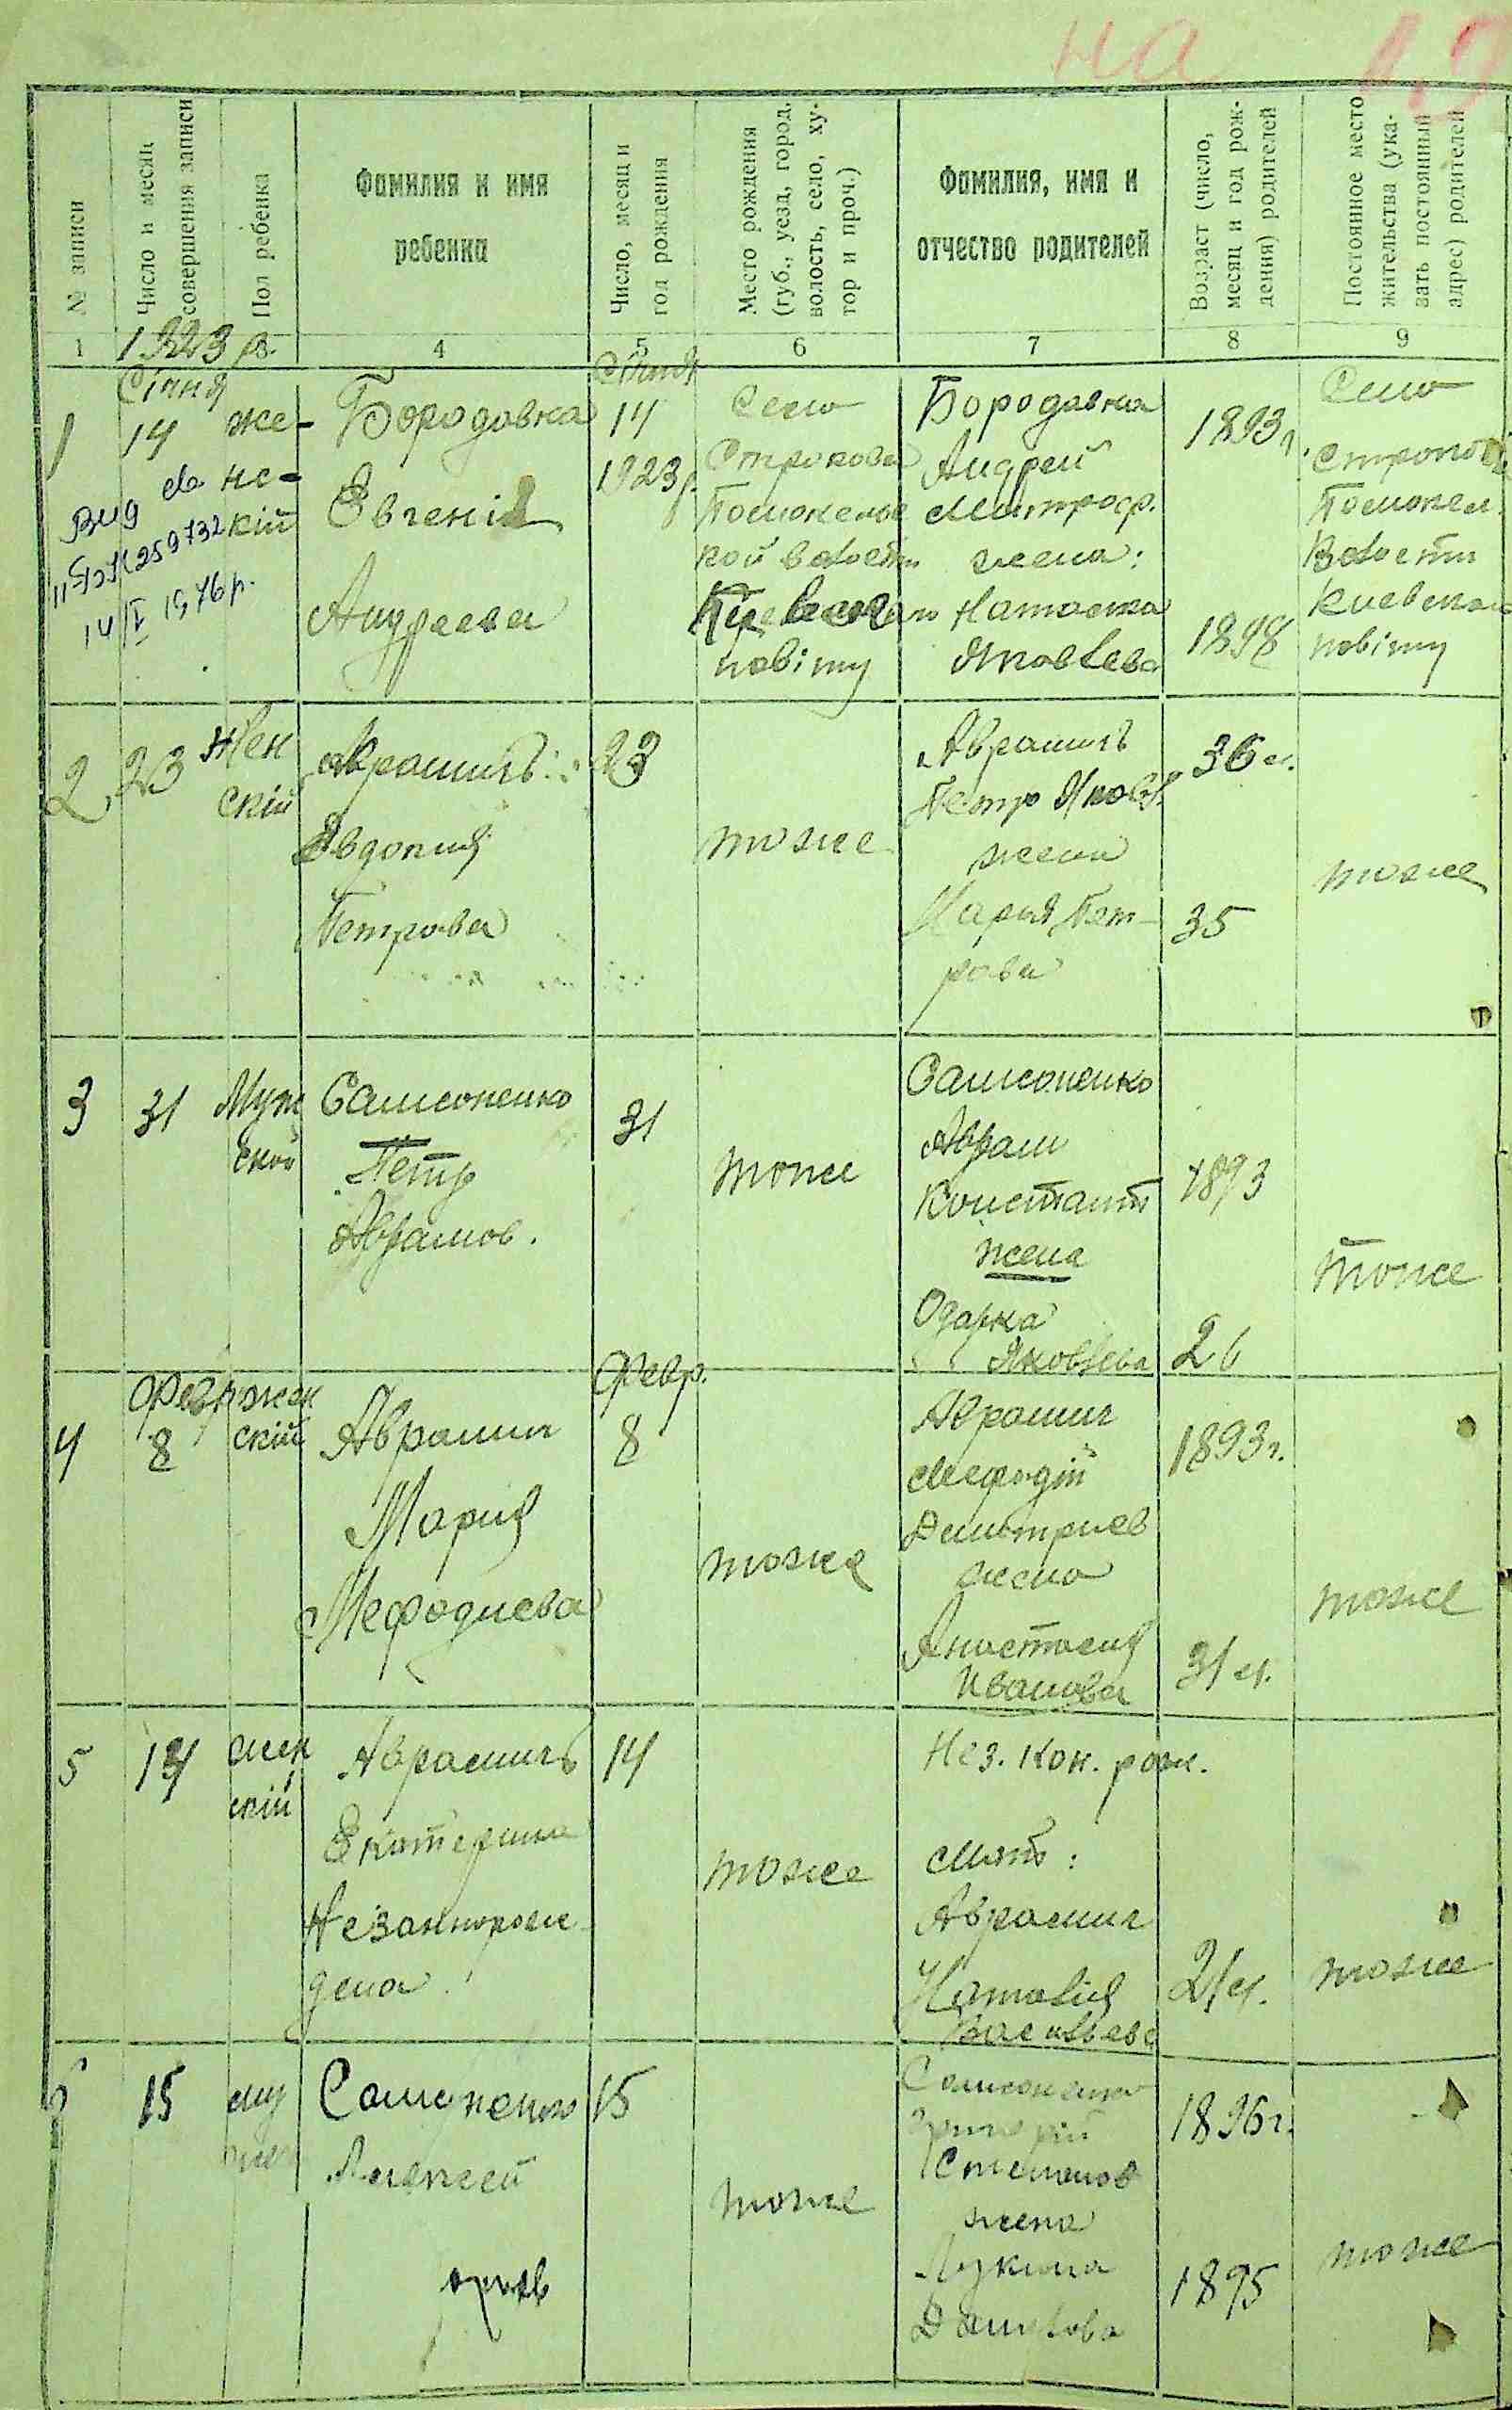 на
№ записи
Число и месяц
совершения записи
Пол ребенка
Фамилия и имя
ребенка
Число, месяц и
год рождения
Место рождения
(губ., уезд, город,
волость, село, ху-
тор и проч.)
Фамилия, имя и
отчество родителей
Возраст (число,
месяц и год рож-
дения) родителей
Постоянное место
жительства (ука-
зать постоянный
адрес) родителей
1
1923 р.
4
5
6
7
8
9
1
Січня
14
же-
нс-
кій
259732
14/I 1976 р.
Бородавка
Евгенія
Андреева
Січня
14
1923 р.
Село
повіту
Бородавка
Андрей
Митроф.
жена:
Наталка
Яковлева
1893 г.
1898
Село
Волости
Киевского
повіту
2
23
Жен
скій
Аврамичъ
Евдокия
Петрова
23
тоже
Аврамичъ
Петро Яковл.
жена
Мария Пет-
рова
36 л.
35
тоже
3
31
Муж
ской
Самсоненко
Петр
Аврамов.
31
тоже
Самсоненко
Аврам
Константт
жена
Одарка
Яковлева
1893
26
тоже
4
Февр
8
жен
скій
Аврамич
Мария
Мефодиева
Февр.
8
тоже
Аврамич
Мефодій
Дмитриев
жена
Анастасия
Иванова
1893 г.
31 л.
тоже
5
14
жен
скій
Аврамичъ
Екатерина
Незаннорож
дена
14
тоже
Нез. кон. рож.
Мать:
Аврамич
Наталия
Васильева
21 л.
тоже
6
15
му
Самсоненко
Алексей
15
тоже
Самсоненко
Григорій
Степанов
жена
Лукина
Данилова
1896 г.
1895
тоже